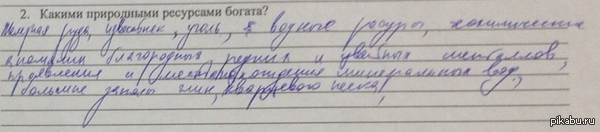 2. Какими природными ресурсами богата?
Железная руда, известняк, уголь, водного расуры, хомические
аномалии благородных, редких и цветных металлов,
проявления и месторождения минеральных вод,
большие запасы глин, кварцевого песка,
pikabu.ru